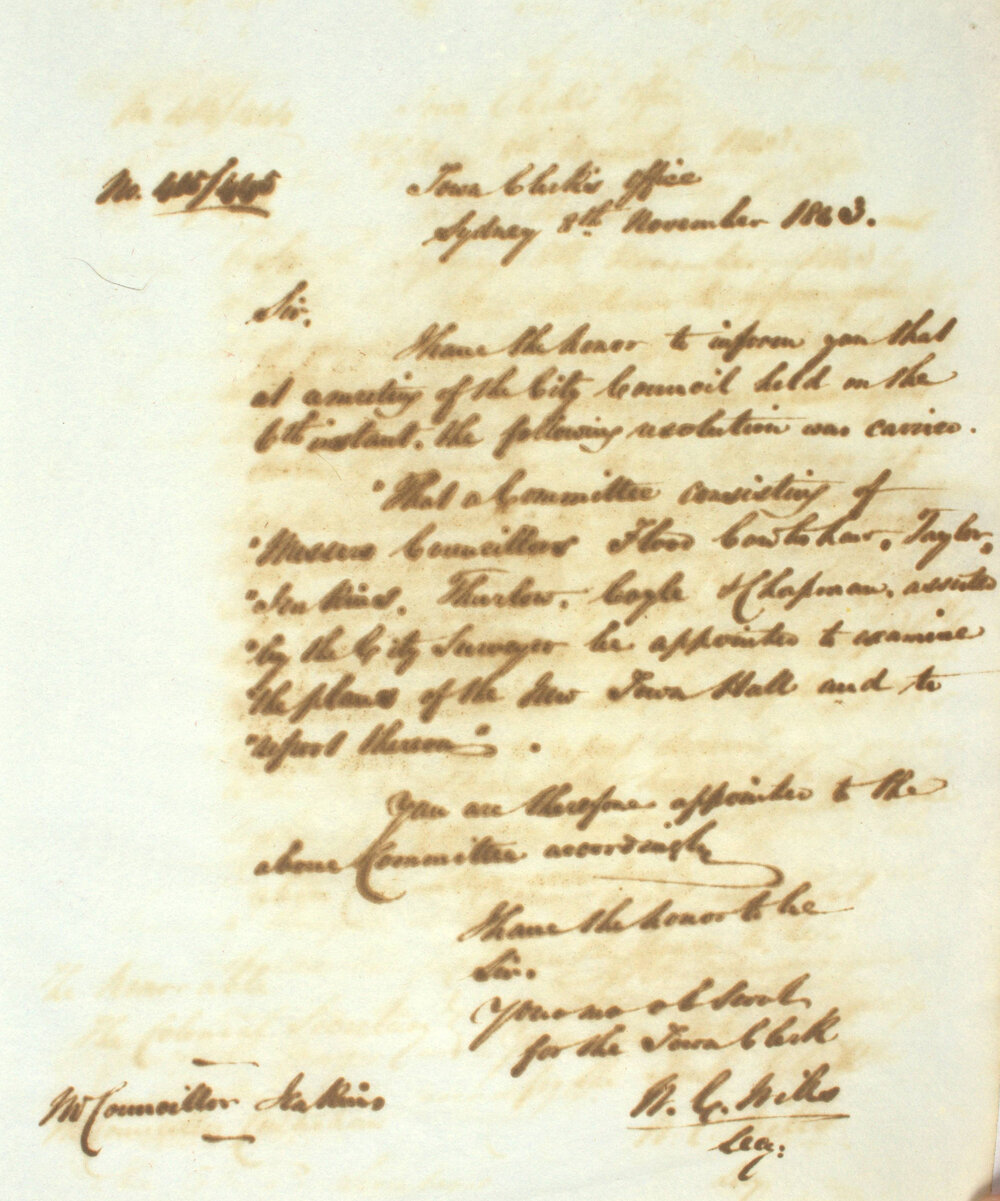 No. 445/445 Town Clerk's Office
Sydney 8th November 1843.
Sir,
I have the honor to inform you that
at a meeting of the City Council held on the
6th instant, the following resolution was carried.
"That a Committee consisting of
"Messrs Councillors Flood Coutshaw, Taylor,
"Jenkins, Thurlow, Coyle & Chapman, assisted
"by the City Surveyor be appointed to examine
"the plans of the New Town Hall and to
"report thereon".
You are therefore appointed to the
above Committee accordingly
I have the honor to be
Sir.
Your mo ob Servt
for the Town Clerk
W. C. Wills
Mr Councillor Jenkins